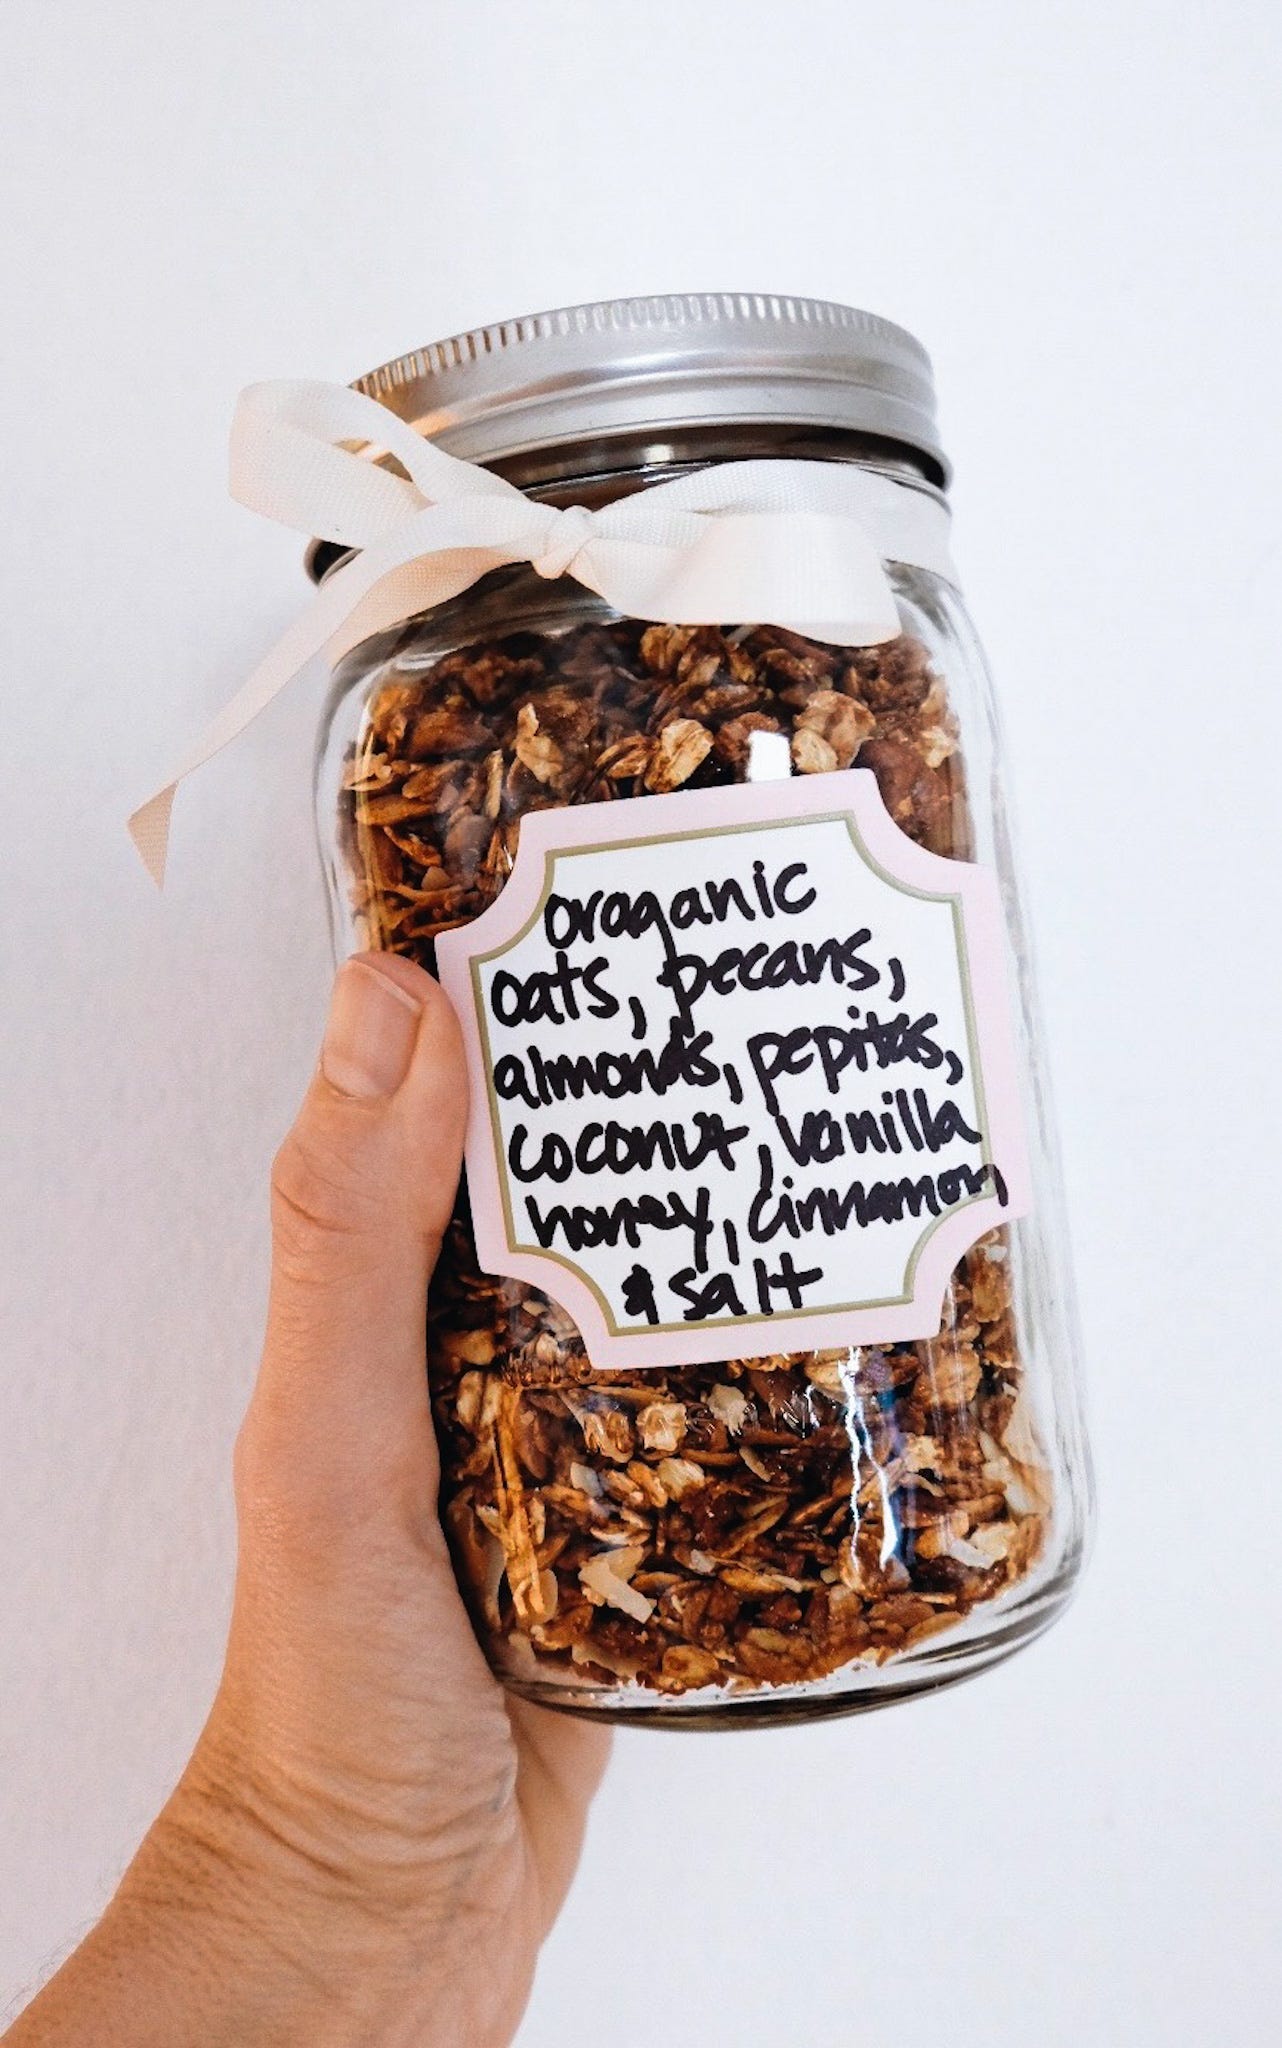 oraganic
oats, pecans,
almonds, pepitas,
coconut, vanilla
honey, cinnamon
& salt